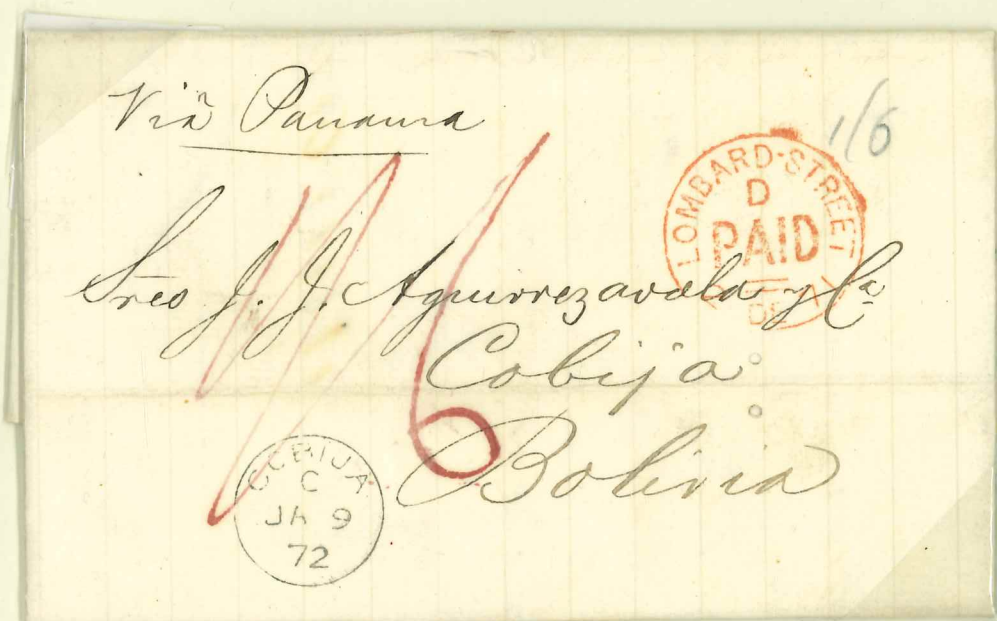 Viâ Panama
1/6
LOMBARD-STREET
D
PAID
1/6
Sres J. J. Aguirrezavala y Ca
Cobija
Bolivia
COBIJA
C
JA 9
72